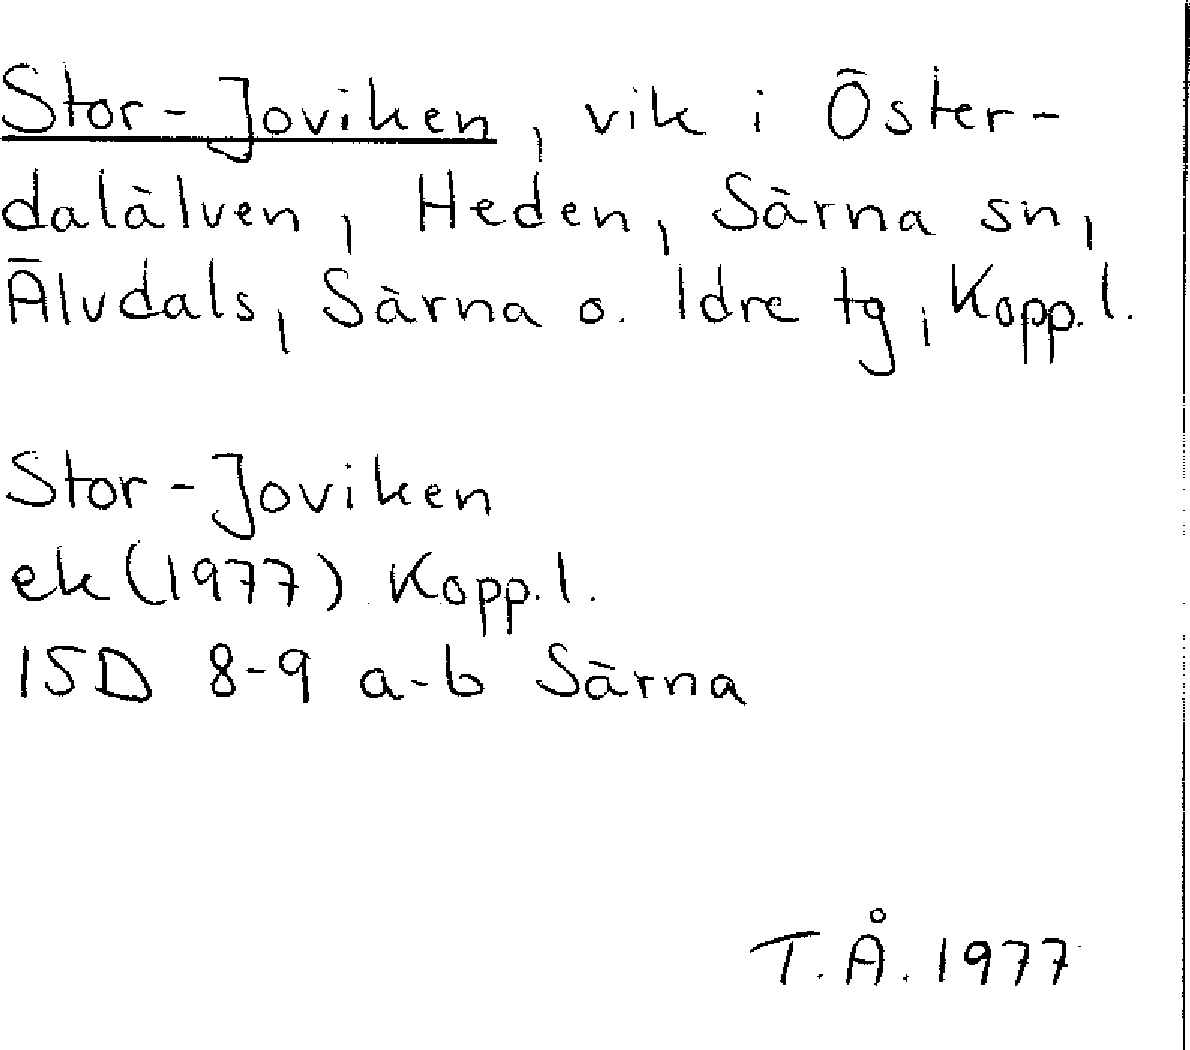 Stor-Joviken, vik i Öster-
dalälven, Heden, Särna sn,
Älvdals, Särna o. Idre tg, Kopp. l.
Stor-Joviken
ek (1977) Kopp. l.
15D 8-9 a-b Särna
T.Å. 1977